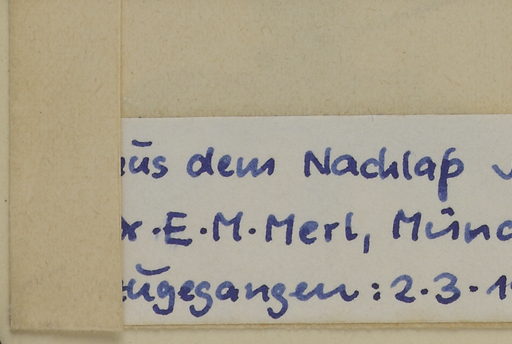 aus dem Nachlaß v
Dr. E. M. Merl, Münc
zugegangen: 2.3.1